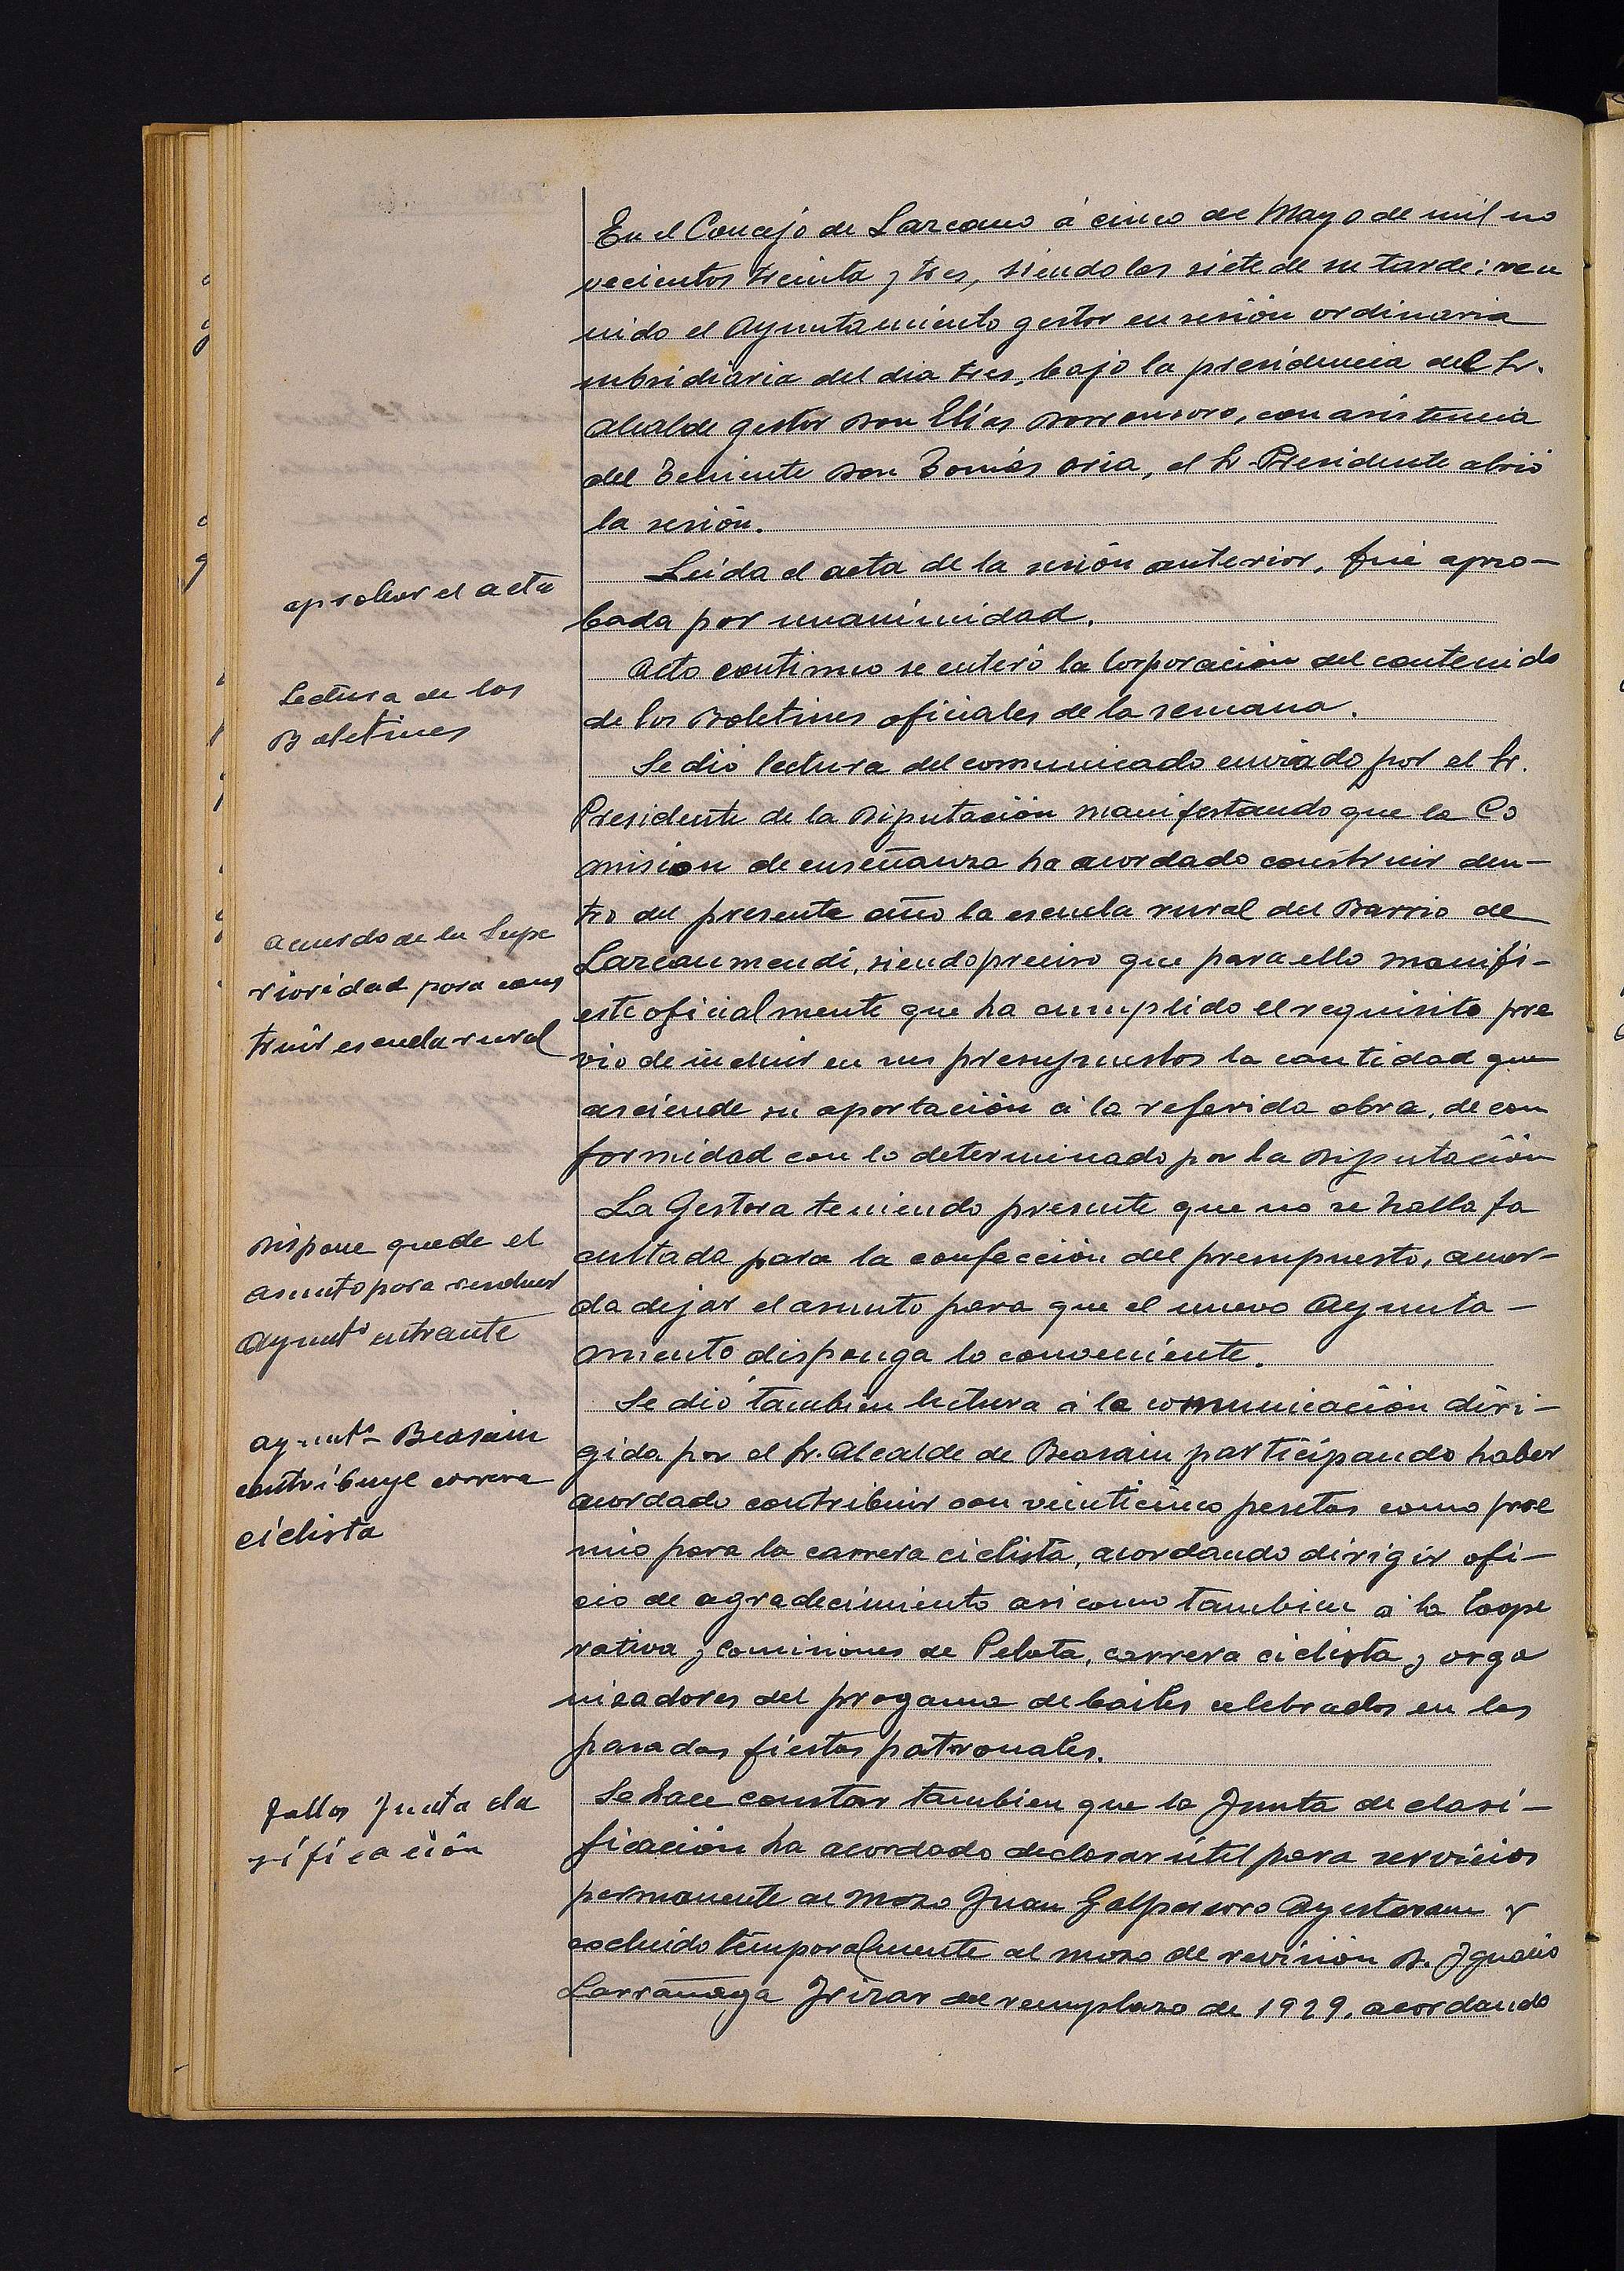 En el Concejo de Lazcano á cinco de Mayo de mil no
vecientos treinta y tres, siendo las siete de su tarde: reu
nido el Ayuntamiento gestor en sesión ordinaria
subsidiaria del dia tres, bajo la presidencia del Sr.
Alcalde gestor Don Elías Dorronsoro, con asistencia
del Teniente Don Tomás Oria, el Sr. Presidente abrió
la sesión.
aprobar el acta
Leida el acta de la sesión anterior, fué apro-
bada por unanimidad.
Lectura de los
Boletines
Acto continuo se enteró la Corporación del contenido
de los Boletines oficiales de la semana.
Acuerdo de la Supe
rioridad para cons
truir escuela rural
Se dió lectura del comunicado enviado por el Sr.
Presidente de la Diputación manifestando que la Co
mision de enseñanza ha acordado construir den-
tro del presente año la escuela rural del Barrio de
Lazcaumendi, siendo preciso que para ello manifi-
este oficialmente que ha cumplido el requisito pre
vio de incluir en sus presupuestos la cantidad que
asciende su aportación á la referida obra, de con
formidad con lo determinado por la Diputación
Dispone quede el
asunto para resolver
Ayunt⁰ entrante
La Gestora teniendo presente que no se halla fa
cultada para la confección del presupuesto, acuer-
da dejar el asunto para que el nuevo Ayunta-
miento disponga lo conveniente.
Ayunt⁰ Beasain
contribuye carrera
ciclista
Se dió tambien lectura á la comunicación diri-
gida por el Sr. Alcalde de Beasain participando haber
acordado contribuir con veinticinco pesetas como pre
mio para la carrera ciclista, acordando dirigir ofi-
cio de agradecimiento asi como tambien á la Coope
rativa y Comisiones de Pelota, carrera ciclista y orga
nizadores del progama de bailes celebrados en las
pasadas fiestas patronales.
Fallos Junta cla
sificación
Se hace constar tambien que la Junta de clasi-
ficación ha acordado declarar útil para servicios
permanente al mozo Juan Galparsoro Ayestaran y
escluido temporalmente al mozo de revisión D. Ignacio
Larrañaga Irizar del remplazo de 1929, acordando